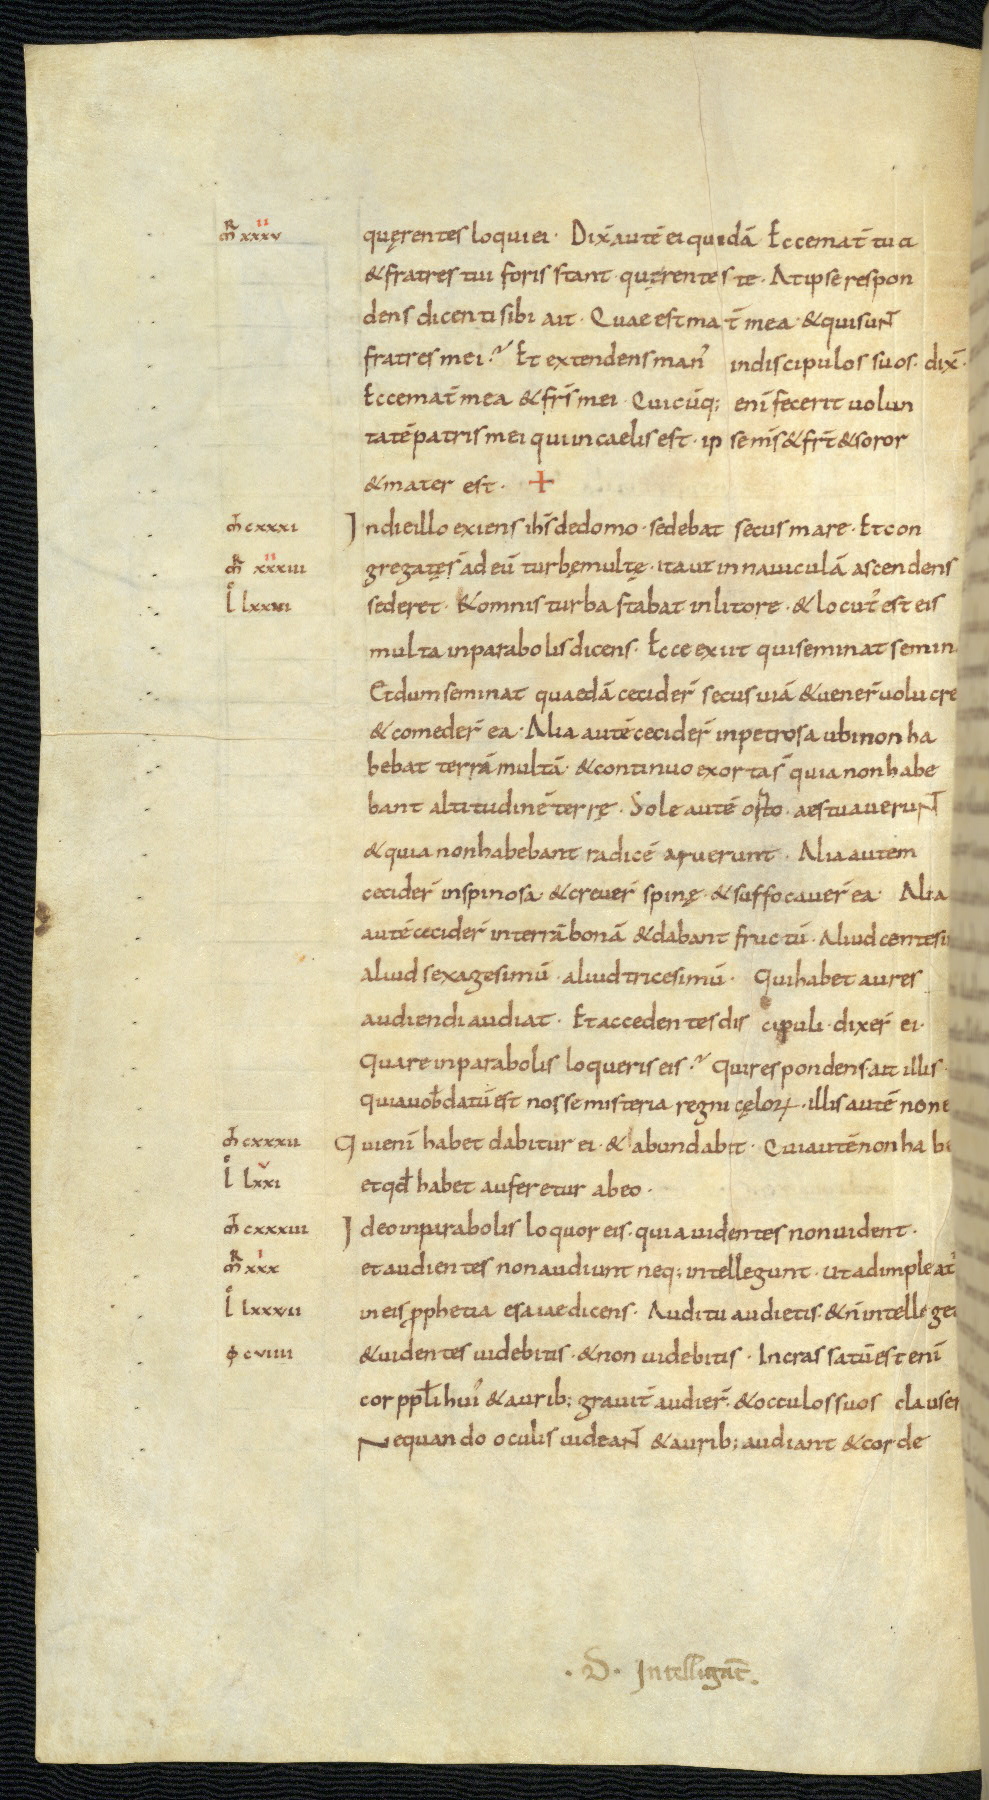 mR xxxv II quęrentes loqui ei · Dix̄ autē ei quidā Ecce mat̄ tua
& fratres tui foris stant quęrentes te · At ipse respon
dens dicenti sibi ait · Quae est mat̄ mea & qui suNT
fratres mei ? Et extendens man᾿ in discipulos suos · dix̄ ·
Ecce mat̄ mea & frs̄ mei · Quicūq; eni᷄ fecerit volun
tatē patris mei qui in caelis est · ipse ms̄ & fr̄t & soror
& mater est · +
m̄ cxxxi In die illo exiens ihs̄ de domo · sedebat secus mare · Et con
mR xxxiii II gregatęs̄ ad eū turbę multę · ita ut in naviculā ascendens
L lxxvi sederet · & omnis turba stabat in litore · & locut᾿ est eis
multa in parabolis dicens · Ecce exiit qui seminat semin
Et dum seminat quaedā cecider̄ secus viā & vener̄ volucre
& comeder̄ ea · Alia autē cecider̄ in petrosa ubi non ha
bebat terrā multā · & continuo exorta s̄ quia non habe
bant altitudinē terrę · Sole autē orto aestuaveruNT
& quia non habebant radicē aruerunt · Alia autem
cecider̄ in spinosa · & crever̄ spinę · & suffocaver̄ ea · Alia
autē cecider̄ in terrā bonā & dabant fructū · Aliud centesi
aliud sexagesimū · aliud tricesimū · Qui habet aures
audiendi audiat · Et accedentes discipuli · dixer̄ ei ·
Quare in parabolis loqueris eis ? Qui respondens ait illis ·
quia vob̄ datū est nosse misteria regni cęloꝝ · illis autē non e
m̄ cxxxii Qui eni᷄ habet dabitur ei · & abundabit · Qui autē non habe
L lxxi v et qd̄ habet auferetur ab eo ·
m̄ cxxxiii Ideo in parabolis loquor eis · quia videntes non vident ·
mR xxx I et audientes non audiunt neq; intellegunt · Ut adimpleat᾿
L lxxvii in eis pphetia esaiae dicens · Auditu audietis · & n̄ intellege
φ cviiii & videntes videbitis · & non videbitis · Incrassatū est eni᷄
cor ppl̄i hui᾿ & aurib; gravit̄ audier̄ · & occulos suos clauser
Nequando oculis videaNT & aurib; audiant & corde
· D · Intelligāt ·